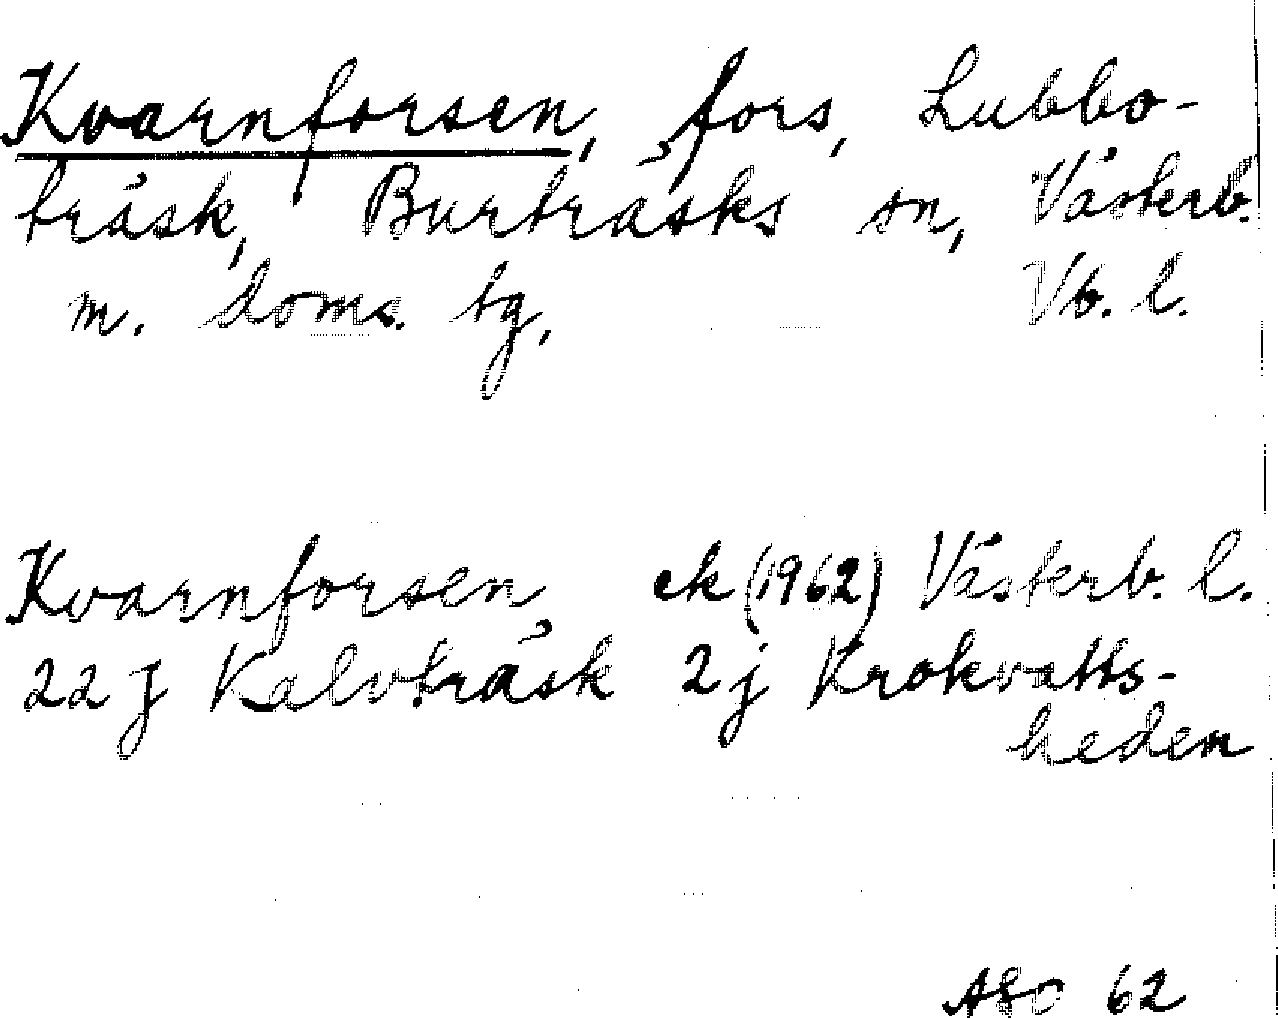 Kvarnforsen, fors, Lubbo-
träsk, Burträsks sn, Västerb.
m. doms. tg, Vb. l.
Kvarnforsen ek (1962) Västerb. l.
22 J Kalvträsk 2 j Krokvatts-
heden
62